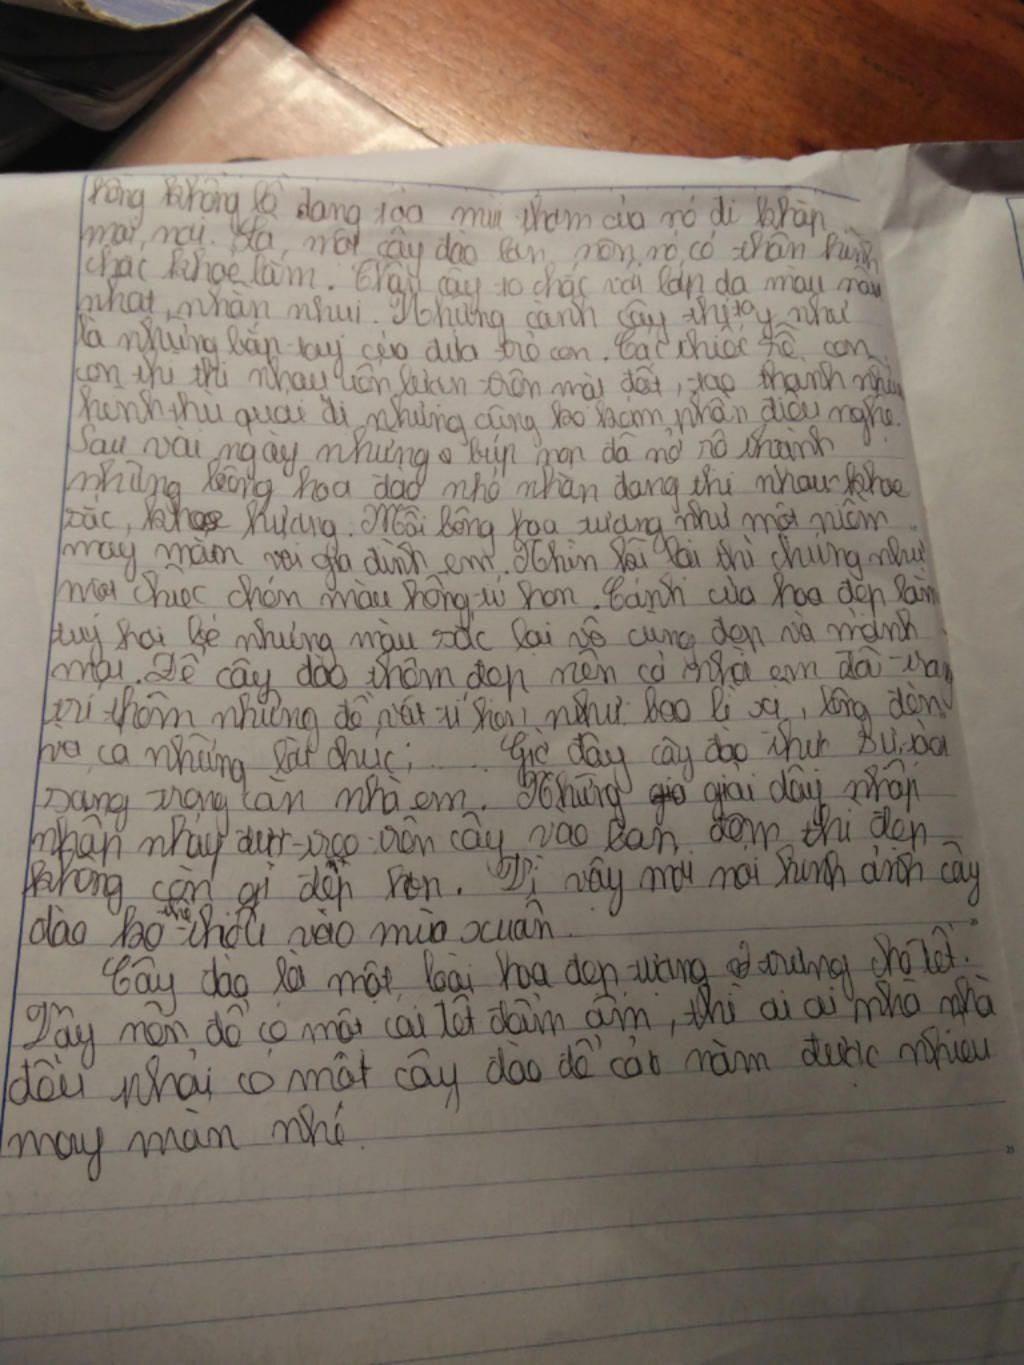 hồng khổng lồ đang tỏa mùi thơm của nó đi khắp
mọi nơi. Là một cây đào lớn nên nó có thân hình
chắc khoẻ lắm. Thân cây to chắc với làn da màu nâu
nhạt, nhăn nhui. Những cành cây thì tựa như
là những bắp tay của đứa trẻ con. Các chiếc rễ con
con thì thi nhau uốn lượn trên mặt đất, tạo thành những
hình thù quái dị nhưng cũng ko kém phần điệu nghệ.
Sau vài ngày những búp non đã nở rõ thành
những bông hoa đào nhỏ nhắn đang thi nhau khoe
sắc, khoe hương. Mỗi bông hoa tượng như một niềm
may mắn với gia đình em. Nhìn kĩ lại thì chúng như
một chiếc chén màu hồng tí hon. Cánh của hoa đẹp lắm
tuy hơi bé nhưng màu sắc lại vô cùng đẹp và mềm
mại. Để cây đào thêm đẹp nên cả nhà em đã trang
trí thêm những đồ vật tí hon như bao lì xì, lồng đèn
và cả những lời chúc; ..... Giờ đây cây đào thực sự tỏa
sáng trong căn nhà em. Những giải dây nhấp
nhấp nháy được treo trên cây vào ban đêm thì đẹp
không còn gì đẹp hơn. Vì vậy mọi nơi hình ảnh cây
đào ko thể thiếu vào mùa xuân.
Cây đào là một loài hoa đẹp tượng trưng cho tết.
Vậy nên để có một cái tết đầm ấm, thì ai ai nhà nhà
đều phải có một cây đào để cả năm được nhiều
may mắn nhé.